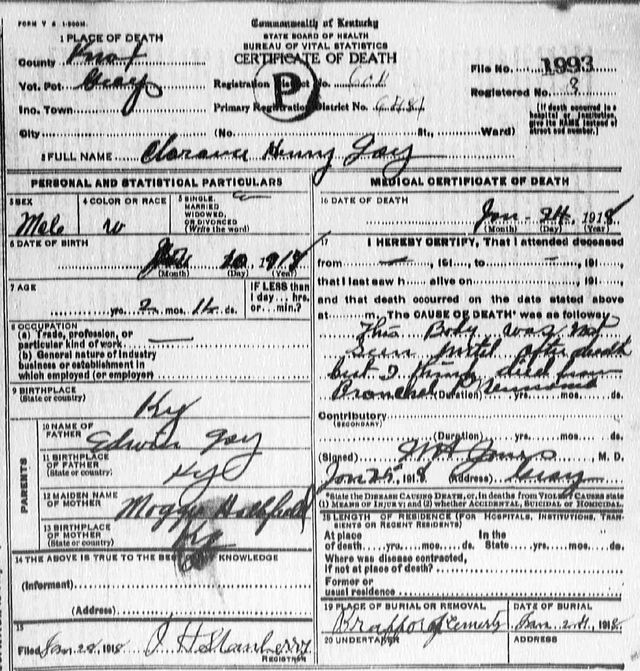 FORM V S 1-500M.
Commonwealth of Kentucky
STATE BOARD OF HEALTH
BUREAU OF VITAL STATISTICS
CERTIFICATE OF DEATH
1 PLACE OF DEATH
County Knox
Vot. Pct. Gray
Inc. Town
City (No. St., Ward)
Registration District No.
Primary Registration District No.
P
File No. 1993
Registered No.
[If death occurred in a
hospital or institution,
give its NAME instead of
street and number.]
2 FULL NAME Clarance Henry Gay
PERSONAL AND STATISTICAL PARTICULARS
3 SEX
Male
4 COLOR OR RACE
W
5 SINGLE,
MARRIED
WIDOWED,
OR DIVORCED
(Write the word)
6 DATE OF BIRTH
10, 1918
(Month) (Day) (Year)
7 AGE
yrs. 2 mos. 14 ds.
IF LESS than
1 day... hrs.
or... min.?
8 OCCUPATION
(a) Trade, profession, or
particular kind of work
(b) General nature of industry
business or establishment in
which employed (or employer)
9 BIRTHPLACE
(State or country)
Ky
PARENTS
10 NAME OF
FATHER
Edwin Gay
11 BIRTHPLACE
OF FATHER
(State or country)
Ky
12 MAIDEN NAME
OF MOTHER
Moggie
13 BIRTHPLACE
OF MOTHER
(State or country)
Ky
14 THE ABOVE IS TRUE TO THE BEST OF KNOWLEDGE
(Informant)
(Address)
15
Filed Jan 28, 1918
REGISTRAR
MEDICAL CERTIFICATE OF DEATH
16 DATE OF DEATH
Jan - 24, 1918
(Month) (Day) (Year)
17 I HEREBY CERTIFY, That I attended deceased
from —, 191 to —, 191
that I last saw h alive on, 191
and that death occurred on the date stated above
at m. The CAUSE OF DEATH* was as follows
This Body was not
Seen until after death
but I think died from
Bronchel Pneumonia
(Duration) yrs. mos. ds.
Contributory
(SECONDARY)
(Duration) yrs. mos. ds.
(Signed) Jones M. D.
Jan 25, 1918 (Address) Gray
*State the DISEASE CAUSING DEATH, or, in deaths from VIOLENT CAUSES state
(1) MEANS OF INJURY; and (2) whether ACCIDENTAL, SUICIDAL or HOMICIDAL.
18 LENGTH OF RESIDENCE (FOR HOSPITALS, INSTITUTIONS, TRAN-
SIENTS OR RECENT RESIDENTS)
At place In the
of death yrs. mos. ds. State yrs. mos. ds.
Where was disease contracted,
if not at place of death?
Former or
usual residence
19 PLACE OF BURIAL OR REMOVAL
DATE OF BURIAL
Jan. 24, 1918
20 UNDERTAKER
ADDRESS